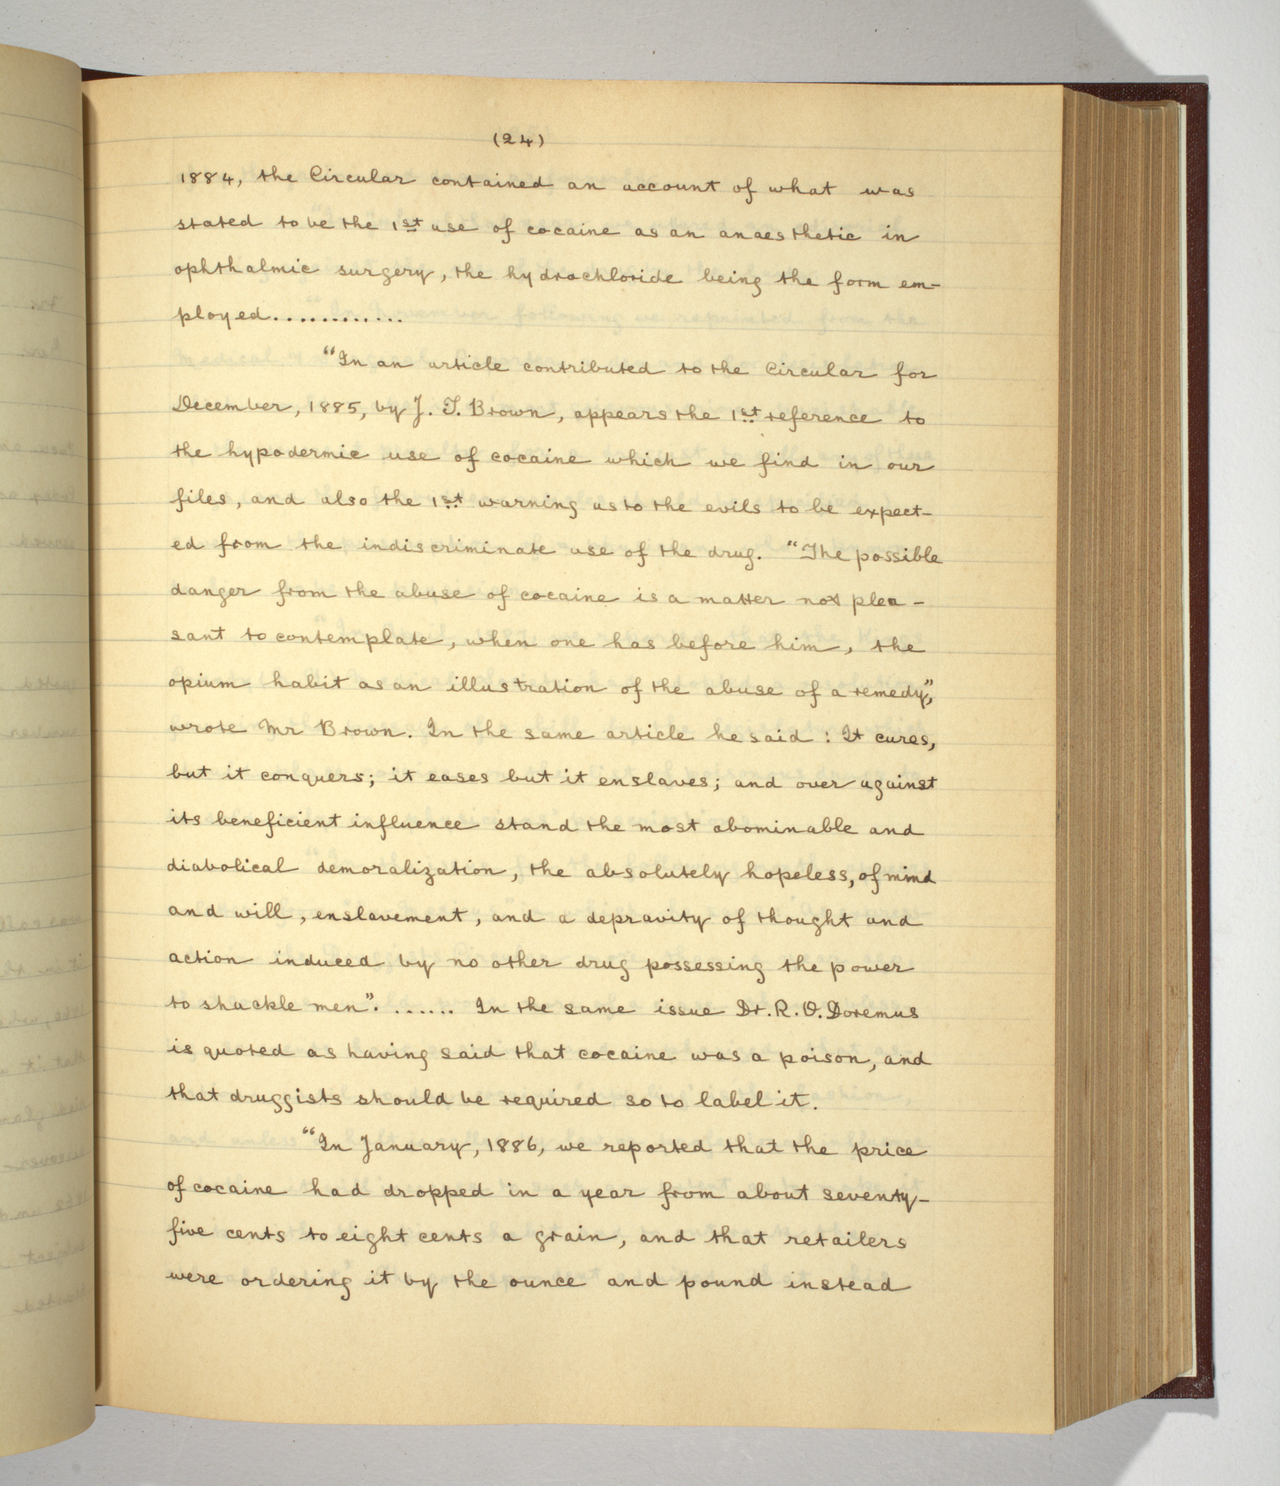 (24)
1884, the Circular contained an account of what was
stated to be the 1st use of cocaine as an anaesthetic in
ophthalmic surgery, the hydrochloride being the form em-
ployed............
"In an article contributed to the Circular for
December, 1885, by J. T. Brown, appears the 1st reference to
the hypodermic use of cocaine which we find in our
files, and also the 1st warning as to the evils to be expect-
ed from the indiscriminate use of the drug. "The possible
danger from the abuse of cocaine is a matter not plea-
sant to contemplate, when one has before him, the
opium habit as an illustration of the abuse of a remedy",
wrote Mr Brown. In the same article he said : It cures,
but it conquers; it eases but it enslaves; and over against
its beneficient influence stand the most abominable and
diabolical demoralization, the absolutely hopeless, of mind
and will, enslavement, and a depravity of thought and
action induced by no other drug possessing the power
to shackle men". ...... In the same issue Dr. R. O. Doremus
is quoted as having said that cocaine was a poison, and
that druggists should be required so to label it.
"In January, 1886, we reported that the price
of cocaine had dropped in a year from about seventy-
five cents to eight cents a grain, and that retailers
were ordering it by the ounce and pound instead